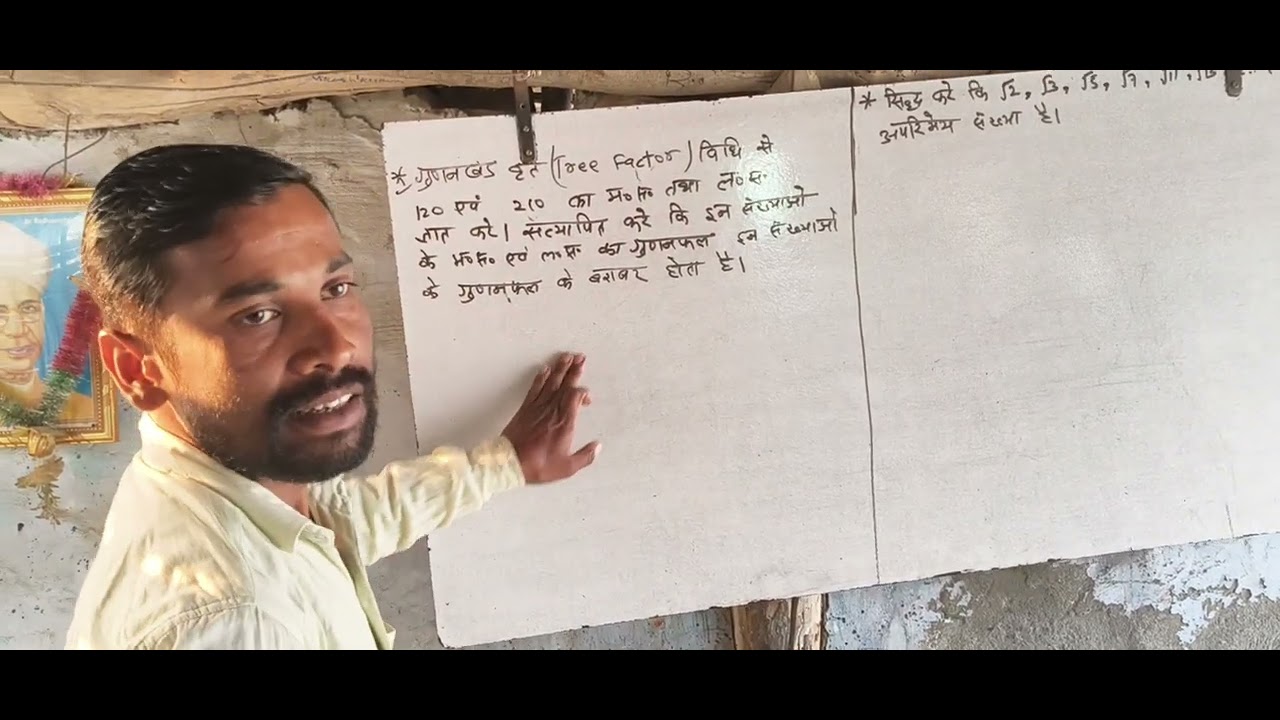 * गुणनखंड वृत (Tree Factor) विधि से
120 एवं 210 का म०स० तथा ल०स०
ज्ञात करे। सत्यापित करे कि इन संख्याओ
के म०स० एवं ल०स० का गुणनफल इन संख्याओ
के गुणनफल के बराबर होता है।
* सिद्ध करे कि √2, √3, √5, √7, √11, √13
अपरिमेय संख्या है।